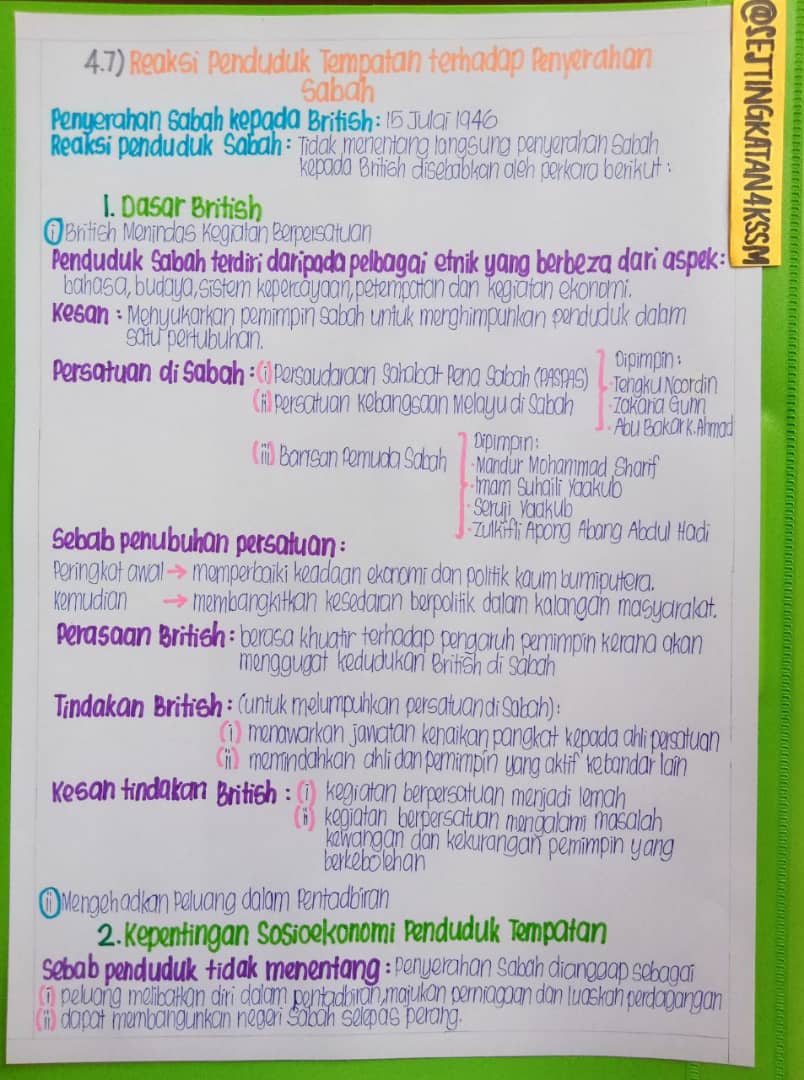 4.7) Reaksi Penduduk Tempatan terhadap Penyerahan
Sabah
Penyerahan Sabah kepada British : 15 Julai 1946
Reaksi penduduk Sabah : Tidak menentang langsung penyerahan Sabah
kepada British disebabkan oleh perkara berikut :
1. Dasar British
(i) British Menindas Kegiatan Berpersatuan
Penduduk Sabah terdiri daripada pelbagai etnik yang berbeza dari aspek :
bahasa, budaya, sistem kepercayaan, petempatan dan kegiatan ekonomi.
Kesan : Menyukarkan pemimpin Sabah untuk menghimpunkan penduduk dalam
satu pertubuhan.
Persatuan di Sabah : (i) Persaudaraan Sahabat Pena Sabah (PASPAS)
(ii) Persatuan Kebangsaan Melayu di Sabah
Dipimpin :
· Tengku Noordin
· Zakaria Gunn
· Abu Bakar K. Ahmad
(iii) Barisan Pemuda Sabah
Dipimpin :
· Mandur Mohammad Sharif
· Imam Suhaili Yaakub
· Seruji Yaakub
· Zulkifli Apong Abang Abdul Hadi
Sebab penubuhan persatuan :
Peringkat awal → memperbaiki keadaan ekonomi dan politik kaum bumiputera.
Kemudian → membangkitkan kesedaran berpolitik dalam kalangan masyarakat.
Perasaan British : berasa khuatir terhadap pengaruh pemimpin kerana akan
menggugat kedudukan British di Sabah
Tindakan British : (untuk melumpuhkan persatuan di Sabah) :
(i) menawarkan jawatan kenaikan pangkat kepada ahli persatuan
(ii) memindahkan ahli dan pemimpin yang aktif ke bandar lain
Kesan tindakan British : (i) kegiatan berpersatuan menjadi lemah
(ii) kegiatan berpersatuan mengalami masalah
kewangan dan kekurangan pemimpin yang
berkebolehan
(ii) Mengehadkan Peluang dalam Pentadbiran
2. Kepentingan Sosioekonomi Penduduk Tempatan
Sebab penduduk tidak menentang : Penyerahan Sabah dianggap sebagai
(i) peluang melibatkan diri dalam pentadbiran, majukan perniagaan dan luaskan perdagangan
(ii) dapat membangunkan negeri Sabah selepas perang.
@SEJTINGKATAN4KSSM